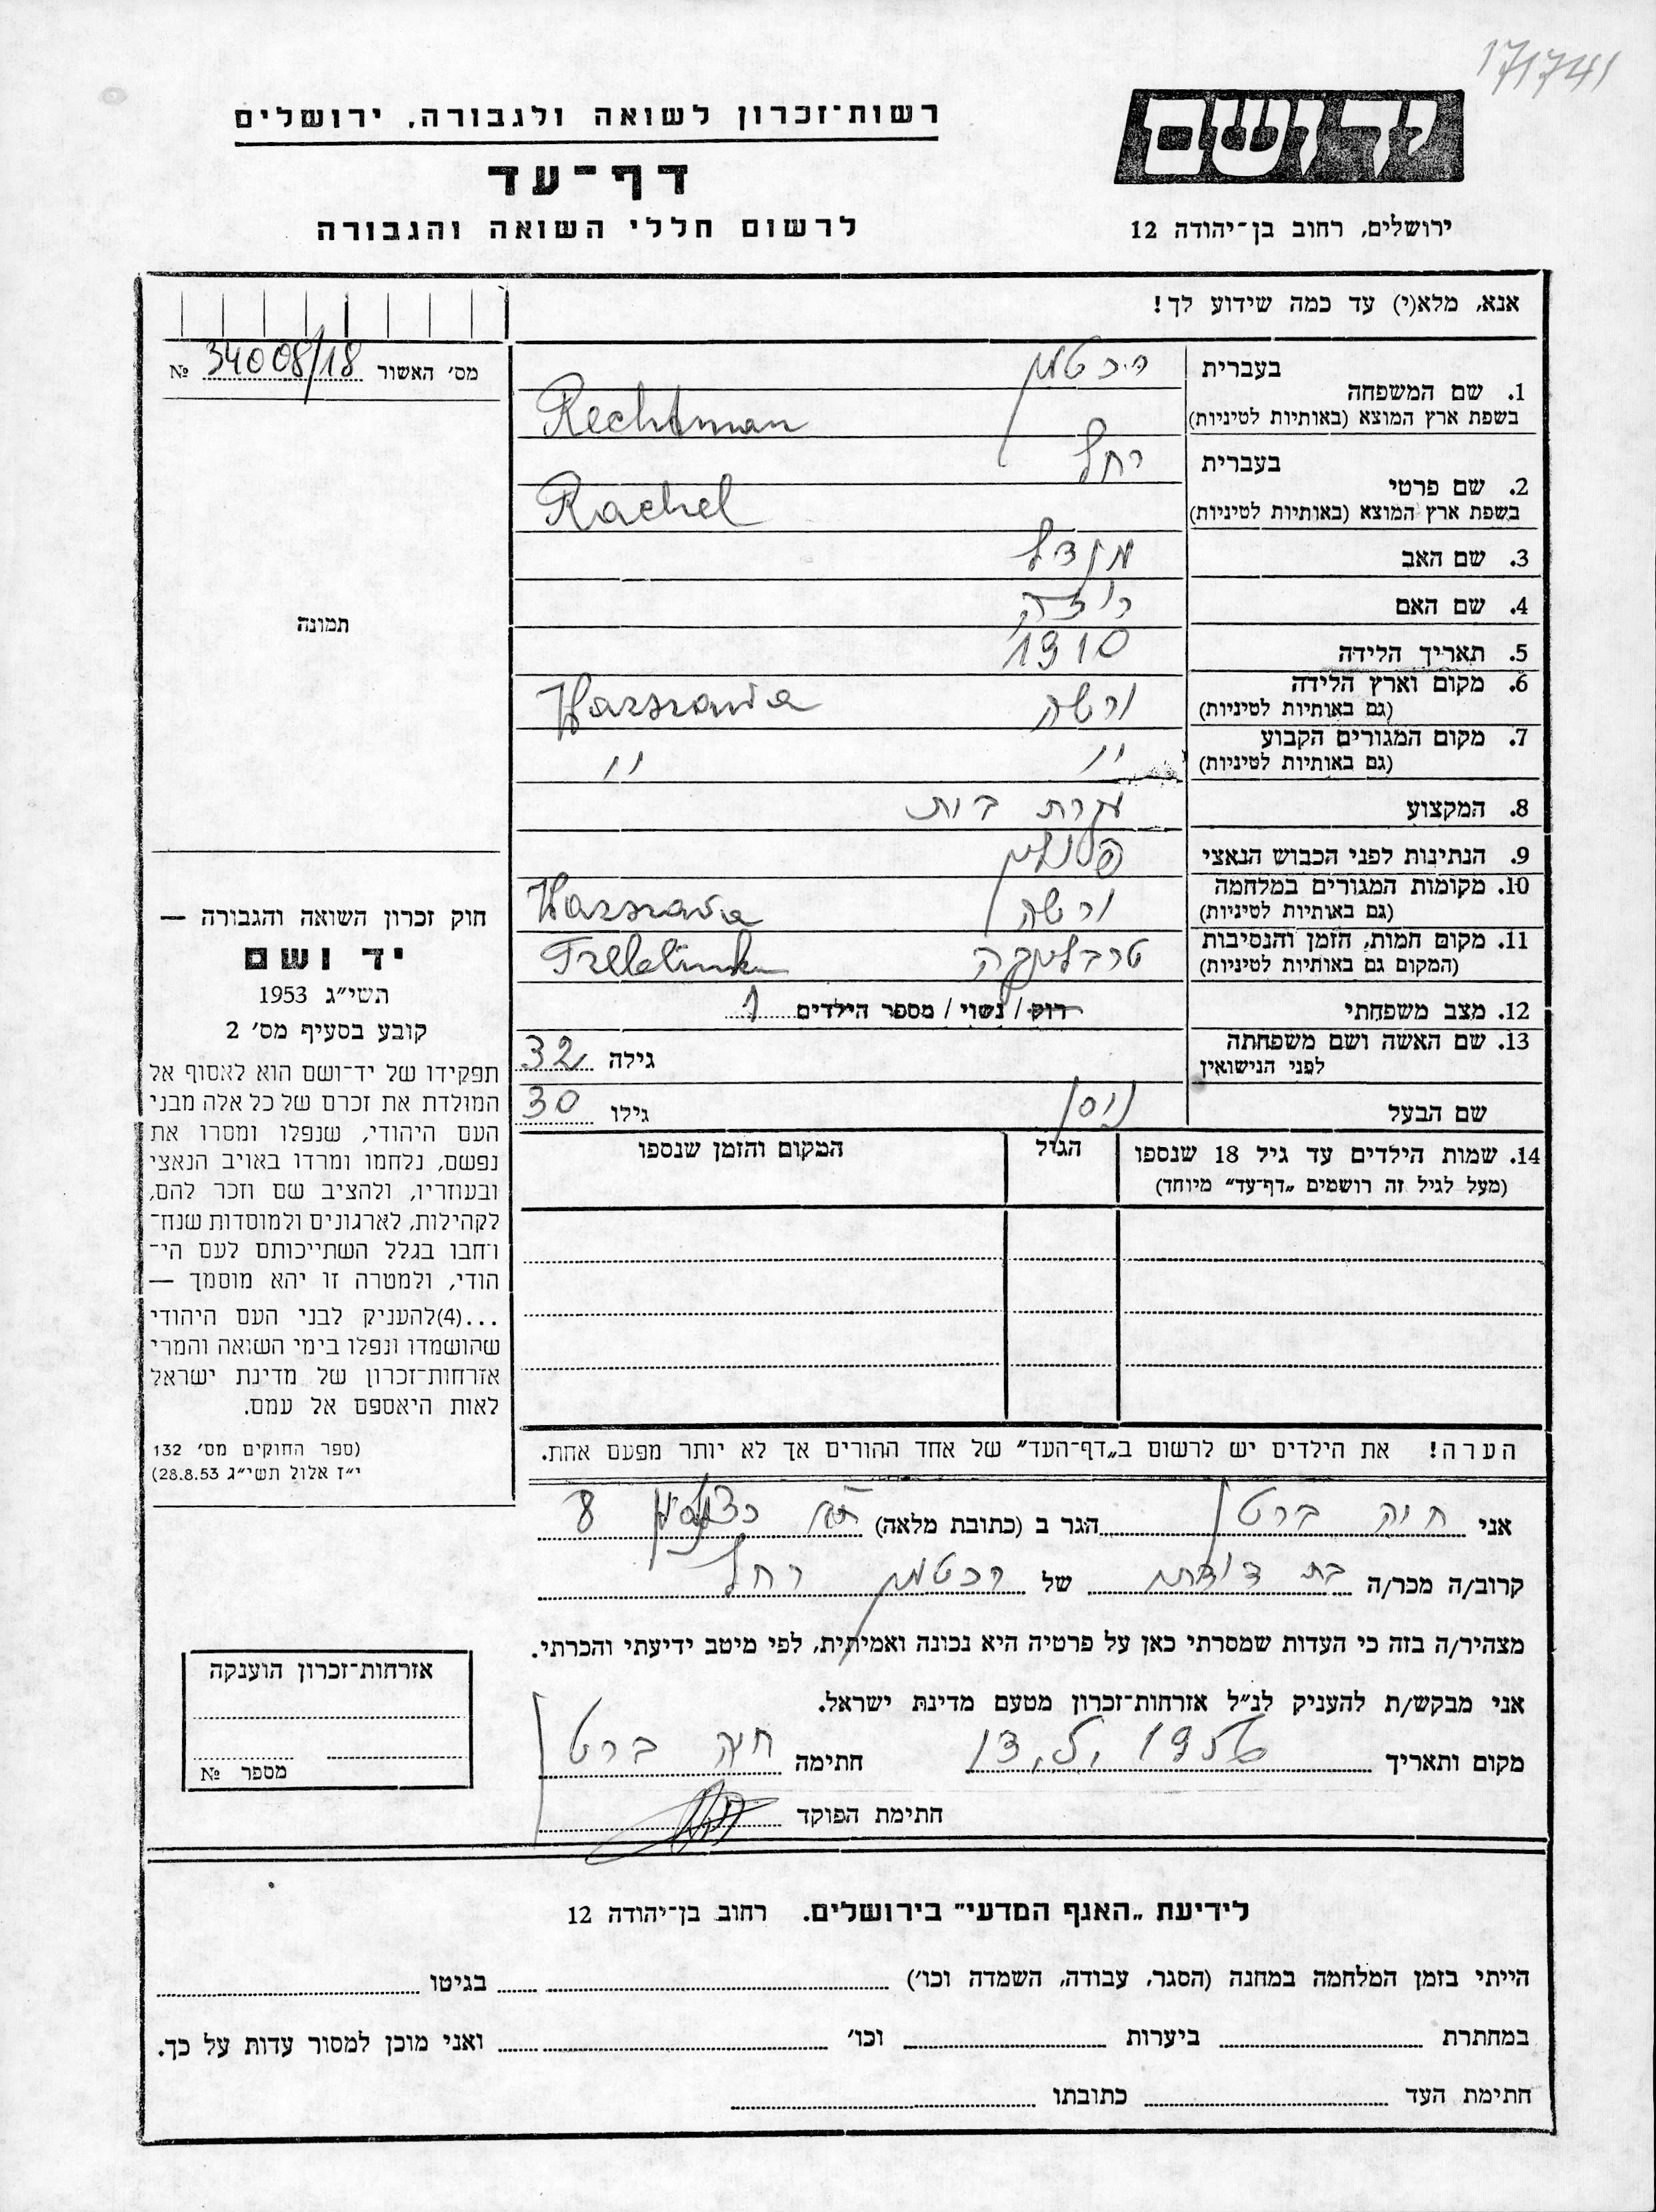 171741
ידושם
ירושלים, רחוב בן־יהודה 12
רשות־זכרון לשואה ולגבורה, ירושלים
דף־עד
לרשום חללי השואה והגבורה
אנא, מלא(י) עד כמה שידוע לך!
מס׳ האשור 34008/18 №
1. שם המשפחה
בעברית רכטמן
בשפת ארץ המוצא (באותיות לטיניות) Rechtman
2. שם פרטי
בעברית רחל
בשפת ארץ המוצא (באותיות לטיניות) Rachel
3. שם האב מנדל
4. שם האם רוזה
5. תאריך הלידה 1910
6. מקום וארץ הלידה (גם באותיות לטיניות) ורשה Warszawa
7. מקום המגורים הקבוע (גם באותיות לטיניות) " "
8. המקצוע עקרת בית
9. הנתינות לפני הכבוש הנאצי
10. מקומות המגורים במלחמה (גם באותיות לטיניות) ורשה Warszawa
11. מקום המות, הזמן והנסיבות (המקום גם באותיות לטיניות) טרבלינקה Treblinka
12. מצב משפחתי רוק / נשוי / מספר הילדים 1
13. שם האשה ושם משפחתה לפני הנישואין גילה 32
שם הבעל ניסן גילו 30
14. שמות הילדים עד גיל 18 שנספו
(מעל לגיל זה רושמים „דף־עד" מיוחד)
הגיל
המקום והזמן שנספו
הערה! את הילדים יש לרשום ב„דף־העד" של אחד ההורים אך לא יותר מפעם אחת.
תמונה
חוק זכרון השואה והגבורה —
יד ושם
תשי״ג 1953
קובע בסעיף מס׳ 2
תפקידו של יד־ושם הוא לאסוף אל
המולדת את זכרם של כל אלה מבני
העם היהודי, שנפלו ומסרו את
נפשם, נלחמו ומרדו באויב הנאצי
ובעוזריו, ולהציב שם וזכר להם,
לקהילות, לארגונים ולמוסדות שנח־
רחבו בגלל השתייכותם לעם הי־
הודי, ולמטרה זו יהא מוסמך —
...(4)להעניק לבני העם היהודי
שהושמדו ונפלו בימי השואה והמרי
אזרחות־זכרון של מדינת ישראל
לאות היאספם אל עמם.
(ספר החוקים מס׳ 132
י״ז אלול תשי״ג 28.8.53)
אני חיה ברט הגר ב (כתובת מלאה) 8
קרוב/ה מכר/ה בת דודת של רכטמן רחל
מצהיר/ה בזה כי העדות שמסרתי כאן על פרטיה היא נכונה ואמיתית, לפי מיטב ידיעתי והכרתי.
אני מבקש/ת להעניק לנ״ל אזרחות־זכרון מטעם מדינת ישראל.
מקום ותאריך 1956 חתימה חיה ברט
חתימת הפוקד
אזרחות־זכרון הוענקה
מספר №
לידיעת „האגף המדעי" בירושלים. רחוב בן־יהודה 12
הייתי בזמן המלחמה במחנה (הסגר, עבודה, השמדה וכו׳) בגיטו
במחתרת ביערות וכו׳ ואני מוכן למסור עדות על כך.
חתימת העד כתובתו